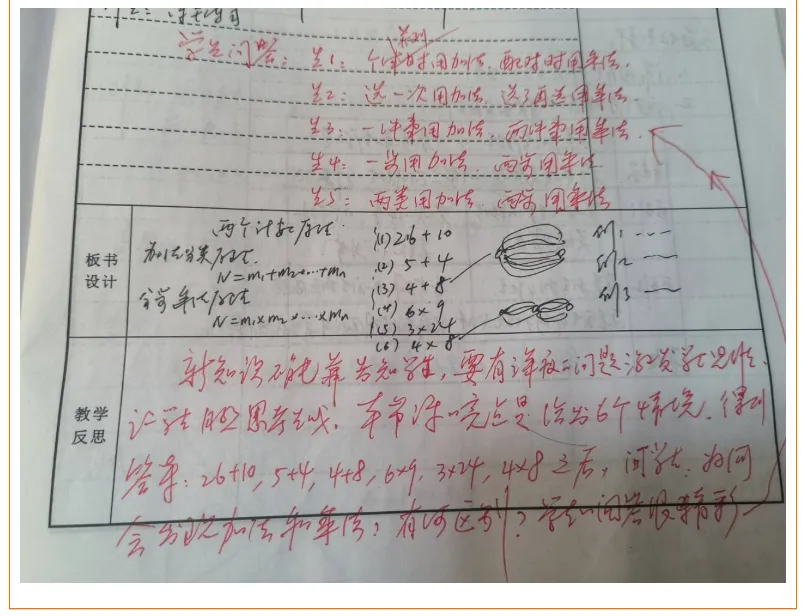 学生回答：生1：个体时用加法，配对时用乘法.
生2：选一次用加法，选了再选用乘法
生3：一件事用加法，两件事用乘法.
生4：一步用加法，两步用乘法
生5：两类用加法，两步用乘法
板书
设计
两个计数原理.
加法分类原理.
N=m₁+m₂…+mₙ
分步乘法原理
N=m₁×m₂×…×mₙ
(1) 26+10
(2) 5+4
(3) 4+8
(4) 6×9
(5) 3×24
(6) 4×8
例1
例2
例3
教学
反思
新知识不能靠告知学生，要有课设问题激发学生思维.
让学生思考. 本节课的亮点是给出6个情境，得到
答案：26+10, 5+4, 4+8, 6×9, 3×24, 4×8之后，问学生，为何
会出现加法和乘法；有何区别？学生的回答很精彩